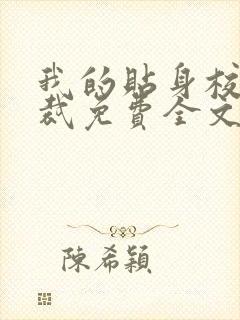 我的贴身校
裁免費全文
陳希穎